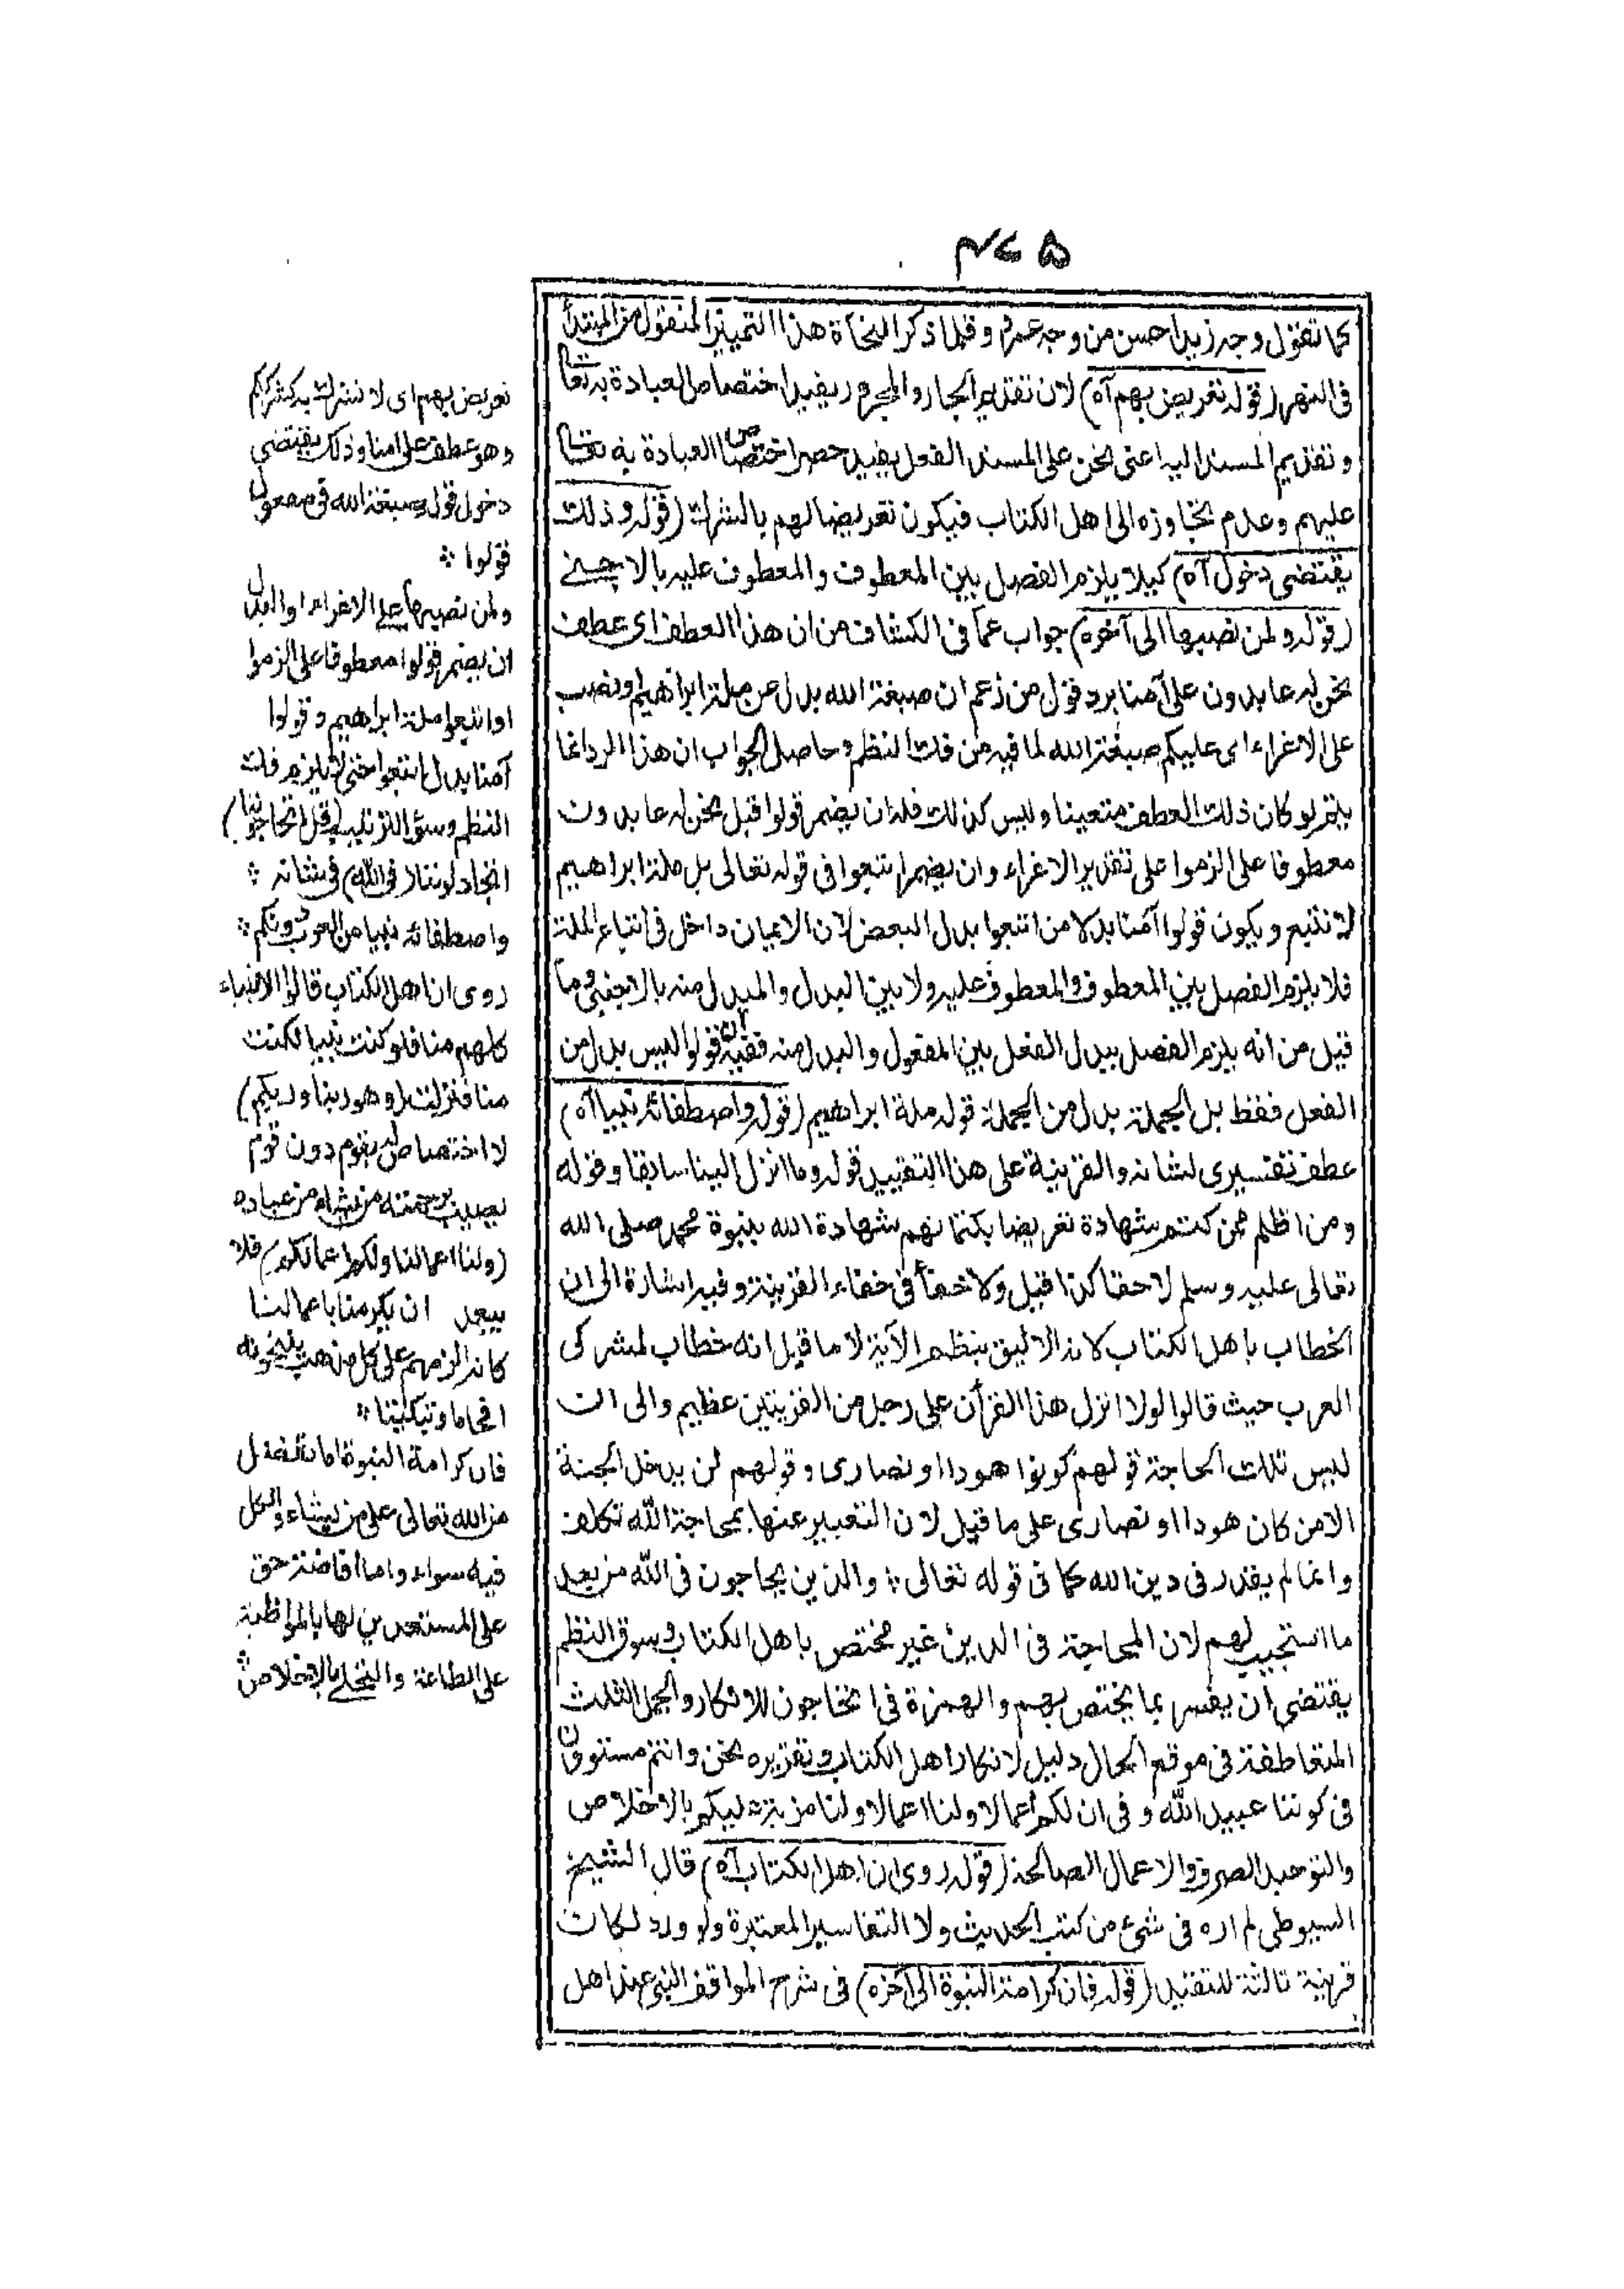 ٤٧٥
كما تقول وجه زيد احسن من وجه عمرو وقلما ذكر النحاة هذا التمييز المنقول من المبتدأ
فى النهر (قوله تعريض بهم آه) لان تقديم الجار والمجرور يفيد اختصاص العبادة به تعا
وتقديم المسند اليه اعنى نحن على المسند الفعل يفيد حصر اختصاص العبادة به تعا
عليهم وعدم تجاوزه الى اهل الكتاب فيكون تعريضا لهم بالشرك (قوله وذلك
يقتضى دخول آه) كيلا يلزم الفصل بين المعطوف والمعطوف عليه بالاجنبے
(قوله ولمن نصبها الى آخره) جواب عما فى الكشاف من ان هذا العطف اى عطف
نحن له عابدون على آمنا يرد قول من زعم ان صبغة الله بدل عن ملة ابراهيم او نصب
على الاغراء اى عليكم صبغة الله لما فيه من فك النظم وحاصل الجواب ان هذا الرد انما
يتم لو كان ذلك العطف متعينا وليس كذلك فله ان يضمر قولوا قبل نحن له عابدون
معطوفا على الزموا على تقدير الاغراء وان يضمر اتبعوا فى قوله تعالى بل ملة ابراهيم
لا نتبع ويكون قولوا آمنا بدلا من اتبعوا بدل البعض لان الايمان داخل فى اتباع الملة
فلا يلزم الفصل بين المعطوف والمعطوف عليه ولا بين البدل والمبدل منه بالاجنبى وما
قيل من انه يلزم الفصل ببدل الفعل بين المفعول والبدل منه ففيه ان قولوا ليس بدل من
الفعل فقط بل الجملة بدل من الجملة قوله ملة ابراهيم (قوله واصطفائه نبيا آه)
عطف تفسيرى لشانه والقرينة على هذا التقييد قوله وما انزل الينا سابقا وقوله
ومن اظلم ممن كتم شهادة تعريضا بكتمانهم شهادة الله بنبوة محمد صلى الله
تعالى عليه وسلم لاحقا كذا قيل ولا خفأ فى خفاء القرينة وفيه اشارة الى ان
الخطاب باهل الكتاب لانه الاليق بنظم الآية لا ما قيل انه خطاب لمشركى
العرب حيث قالوا لولا انزل هذا القرآن على رجل من القريتين عظيم والى ان
ليس تلك المحاجة قولهم كونوا هودا او نصارى وقولهم لن يدخل الجنة
الا من كان هودا او نصارى على ما قيل لان التعبير عنها بمحاجة الله تكلف
وانما لم يقدر فى دين الله كما فى قوله تعالى ؛ والذين يحاجون فى الله من بعد
ما استجيب لهم لان المحاجة فى الدين غير مختص باهل الكتاب وسوق النظم
يقتضى ان يفسر بما يختص بهم والهمزة فى اتحاجون للانكار والجمل الثلث
المتعاطفة فى موقع الحال دليل لانكار اهل الكتاب وتقريره نحن وانتم مستوون
فى كوننا عبيد الله وفى ان لكم اعمالا ولنا اعمالا ولنا مزية عليكم بالاخلاص
والتوحيد الصرف والاعمال الصالحة (قوله روى ان اهل الكتاب آه) قال الشيخ
السيوطى لم اره فى شئ من كتب الحديث ولا التفاسير المعتبرة ولو ورد لكان
قرينة ثالثة للتقييد (قوله فان كرامة النبوة الى آخره) فى شرح المواقف النبى عند اهل
تعريض بهم اى لا نشرك به كشرككم
وهو عطف على امنا وذلك يقتضى
دخول قوله صبغة الله فى مفعول
قولوا ؛
ولمن نصبها على الاغراء او البدل
ان يضمر قولوا معطوفا على الزموا
او اتبعوا ملة ابراهيم وقولوا
آمنا بدل اتبعوا حتى لا يلزم فك
النظم وسوء الترتيب (قل اتحاجوننا)
اتجادلوننا (فى الله) فى شانه ؛
واصطفائه نبيا من العرب دونكم ؛
روى ان اهل الكتاب قالوا الانبياء
كلهم منا فلو كنت نبيا لكنت
منا فنزلت (وهو ربنا وربكم)
لا اختصاص له بقوم دون قوم
يصيب برحمته من يشاء من عباده
(ولنا اعمالنا ولكم اعمالكم) فلا
يبعد ان يكرمنا باعمالنا
كانه الزمهم على كل مذهب ينتحونه
افحاما وتبكيتا ؛
فان كرامة النبوة اما تفضل
من الله تعالى على من يشاء والكل
فيه سواء واما افاضة حق
على المستعدين لها بالمواظبة
على الطاعة والتحلے بالاخلاص ؛